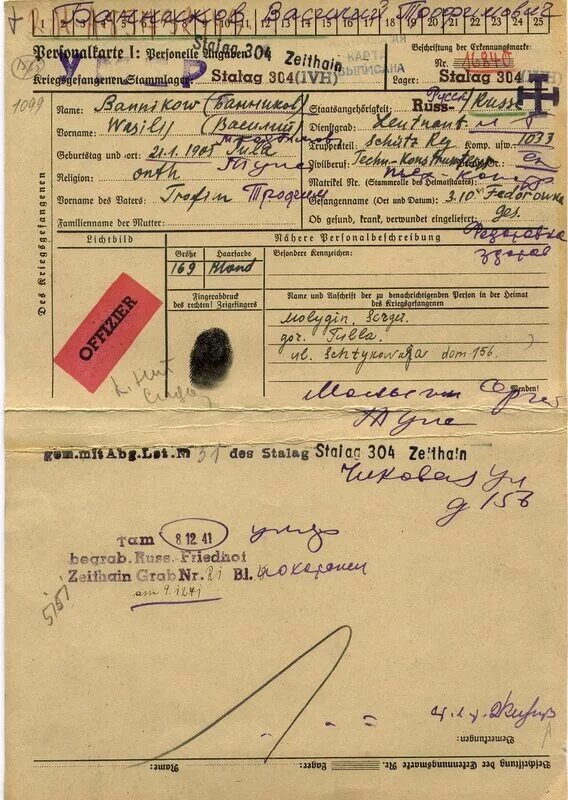 Банников Василий Трофимович
1 2 3 4 5 6 7 8 9 10 11 12 13 14 15 16 17 18 19 20 21 22 23 24 25
Personalkarte I: Personelle Angaben
Stalag 304 Zeithain
КАРТА
ВЫПИСАНА
Beschriftung der Erkennungsmarke:
Nr. 16840
Kriegsgefangenen-Stammlager: Stalag 304 (IVH)
Lager: Stalag 304 (IVH)
1099
Des Kriegsgefangenen
Name: Bannikow (Банников)
Vorname: Wasilij (Василий)
Geburtstag und -ort: Tulla
Тула
Religion: orth
Vorname des Vaters: Trofim Трофим
Familienname der Mutter:
Staatsangehörigkeit: Russ.
Dienstgrad: Leutnant
Truppenteil: Schütz Rg Komp. usw. 1033
Zivilberuf: Techn.
Matrikel Nr. (Stammrolle des Heimatstaates)
Gefangennahme (Ort und Datum): 3.10. Fedorowka
Ob gesund, krank, verwundet eingeliefert: ges.
здоров
Lichtbild
Nähere Personalbeschreibung
Größe Haarfarbe
169 Blond
Besondere Kennzeichen:
Fingerabdruck
des rechten! Zeigefingers
Name und Anschrift der zu benachrichtigenden Person in der Heimat
des Kriegsgefangenen
Molygin, Serge.
gor. Tulla.
ul. dom 156.
OFFIZIER
Wenden!
Тула
gem. mit Abg.Lst.Nr 51 des Stalag Stalag 304 Zeithain
ул
д 156
am 8 12 41
умер
begrab. Russ. Friedhof
Zeithain Grab Nr. Bl.
am 9.1241
5151
Bemerkungen:
Name: Lager: Beschriftung der Erkennungsmarke Nr.